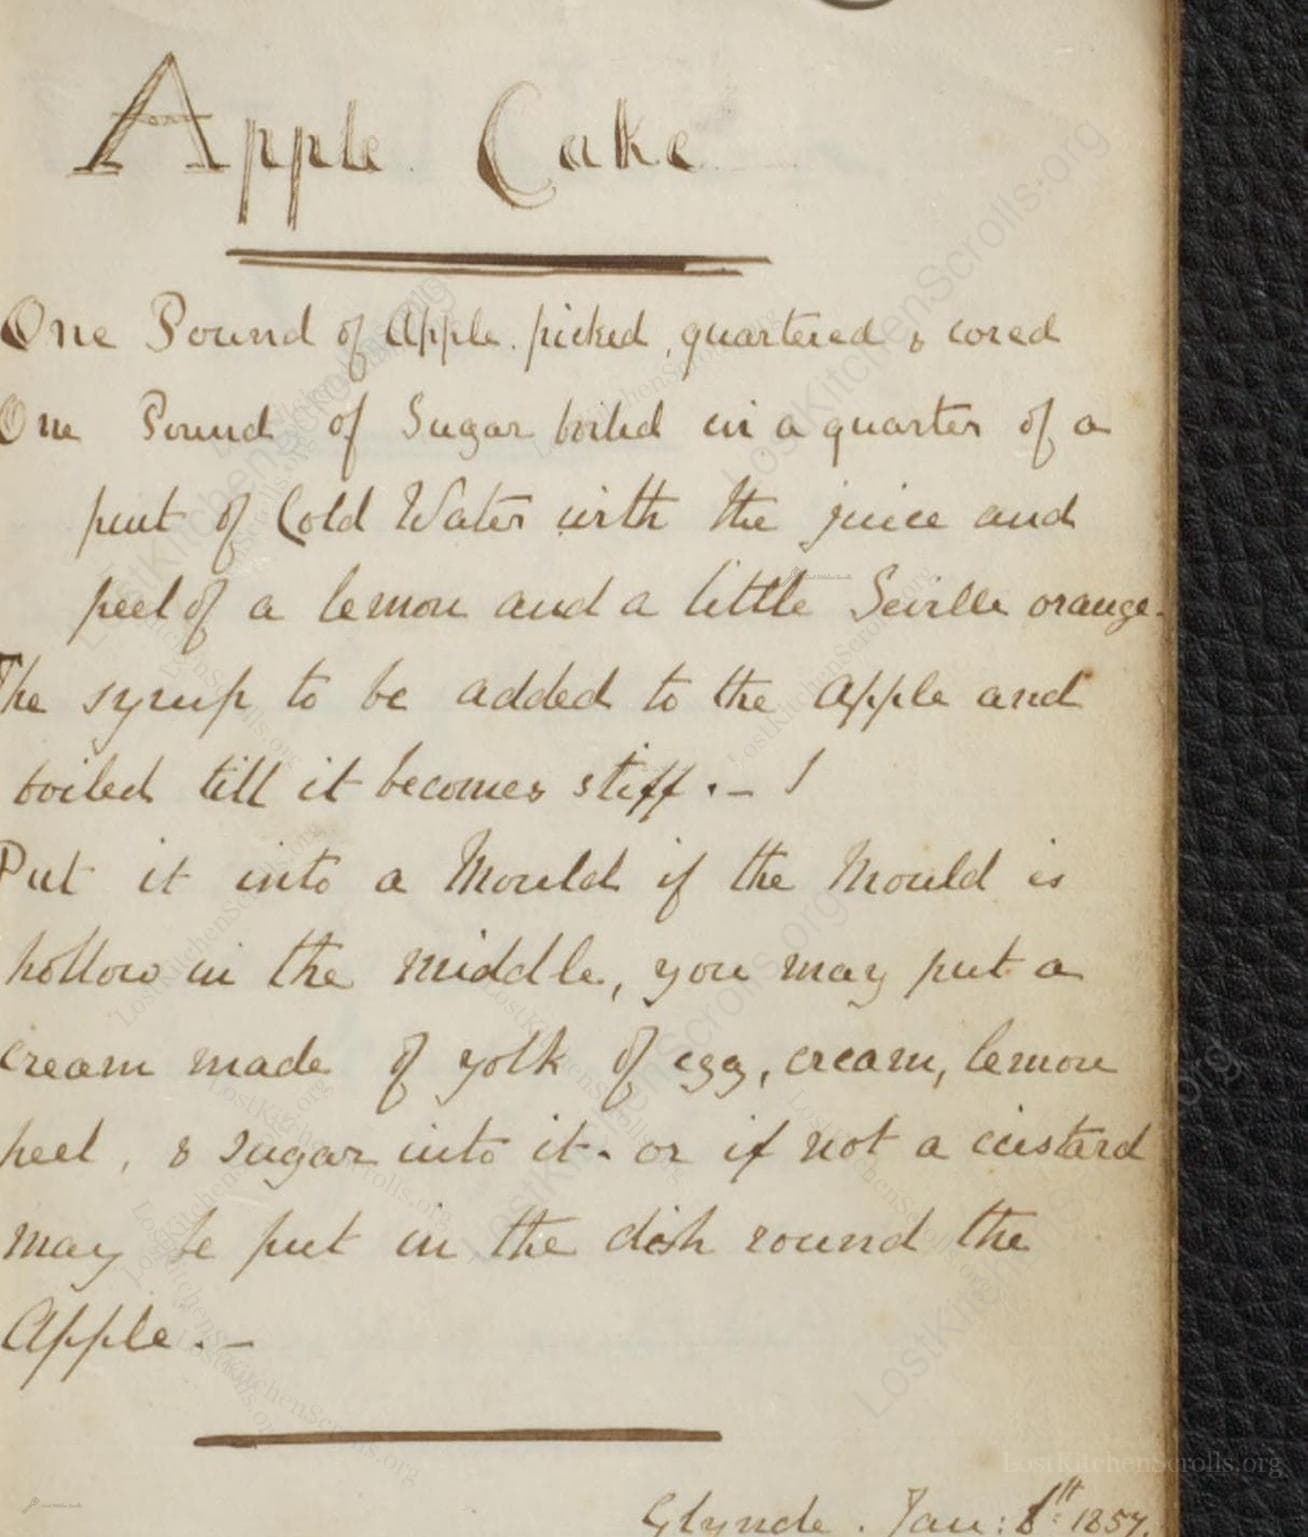 Apple Cake
One Pound of Apple. picked, quartered & cored
One Pound of Sugar boiled in a quarter of a
pint of Cold Water with the juice and
peel of a lemon and a little Seville orange.
The syrup to be added to the Apple and
boiled till it becomes stiff. -
Put it into a Mould if the Mould is
hollow in the middle, you may put a
cream made of yolk of egg, cream, lemon
peel, & sugar into it. or if not a custard
may be put in the dish round the
Apple. -
Glynde. Jan: 1857.
LostKitchenScrolls.org